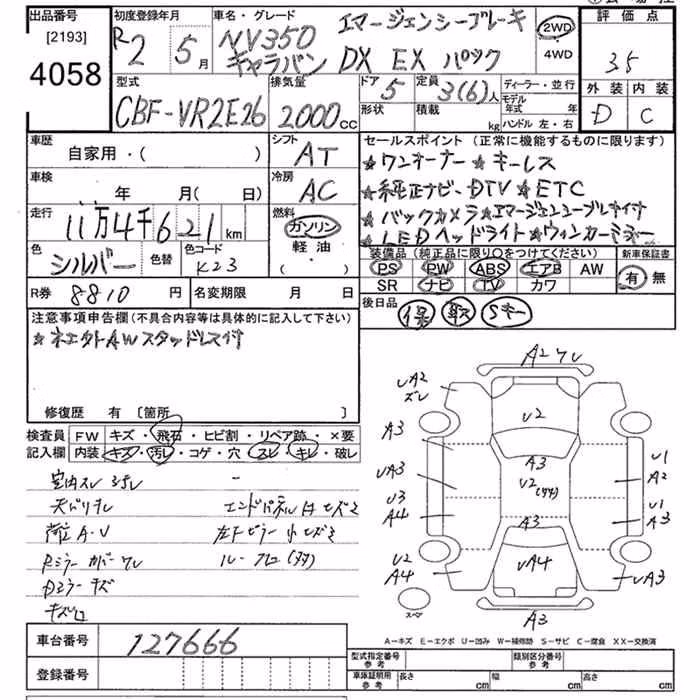 出品番号 初度登録年月 車名・グレード エマージェンシーブレーキ 2WD 評価点
[2193] R2 5月 NV350 4WD 3.5
4058 キャラバン DX EX パック
型式 排気量 ドア 5 定員 3(6)人 ディーラー・並行 外装 内装
CBF-VR2E26 2000cc 形状 積載 kg モデル年式 年 D C
ハンドル 左・右
車歴 シフト セールスポイント(正常に機能するものに限ります)
自家用・( ) AT ★ワンオーナー ★キーレス
車検 年 月(日) 冷房 AC ★純正ナビ DTV ★ETC
走行 11万4千621km 燃料 ガソリン ★バックカメラ★エマージェンシーブレーキ付
軽油・( ) ★LEDヘッドライト★ウィンカーミラー
色 シルバー 色替 色コード K23 装備品(純正品に限り○をつけてください) 新車保証書
PS PW ABS エアB AW 有 無
SR ナビ TV カワ
R券 8810円 名変期限 月 日 後日品 保 取 Sキー
注意事項申告欄(不具合内容等は具体的に記入して下さい)
修復歴 有 [箇所 ]
検査員 FW キズ・飛石・ヒビ割・リペア跡・×要
記入欄 内装 キズ・汚レ・コゲ・穴・スレ・キレ・破レ
荷室 A・U
Rミラーカバーワレ
Dミラーキズ
A2ワレ
UA2
ズレ
U2
A3
A3
U1
A2
UA3
U2
U3
A4
U1
A3
A3
U2
A4
UA4
UA3
スペア
A3
A-キズ E-エクボ U-凹み W-補修跡 S-サビ C-腐食 XX-交換済
車台番号 127666
登録番号
型式指定番号 参考 類別区分番号 参考
車庫証明用 参考 長さ cm 幅 cm 高さ cm